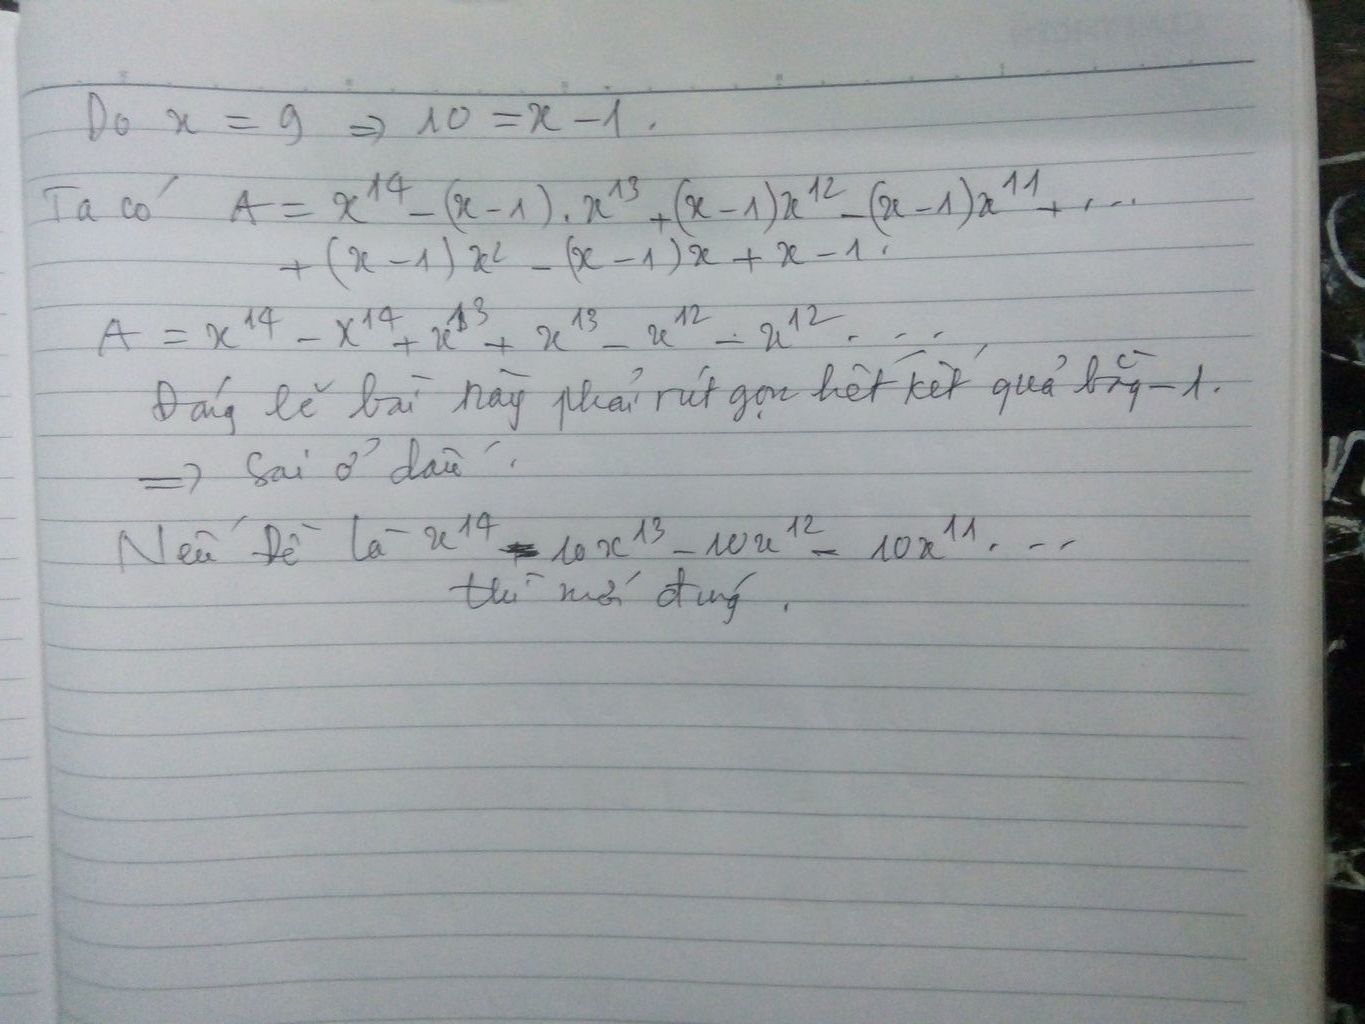 Do x = 9 => 10 = x - 1.
Ta có A = x^14 - (x-1).x^13 + (x-1)x^12 - (x-1)x^11 + ...
+ (x-1)x^2 - (x-1)x + x - 1.
A = x^14 - x^14 + x^13 + x^13 - x^12 - x^12 ...
Đáng lẽ bài này phải rút gọn hết kết quả bằng -1.
=> Sai ở đâu.
Nếu Đề là x^14 - 10x^13 - 10x^12 - 10x^11 ...
thì mới đúng.